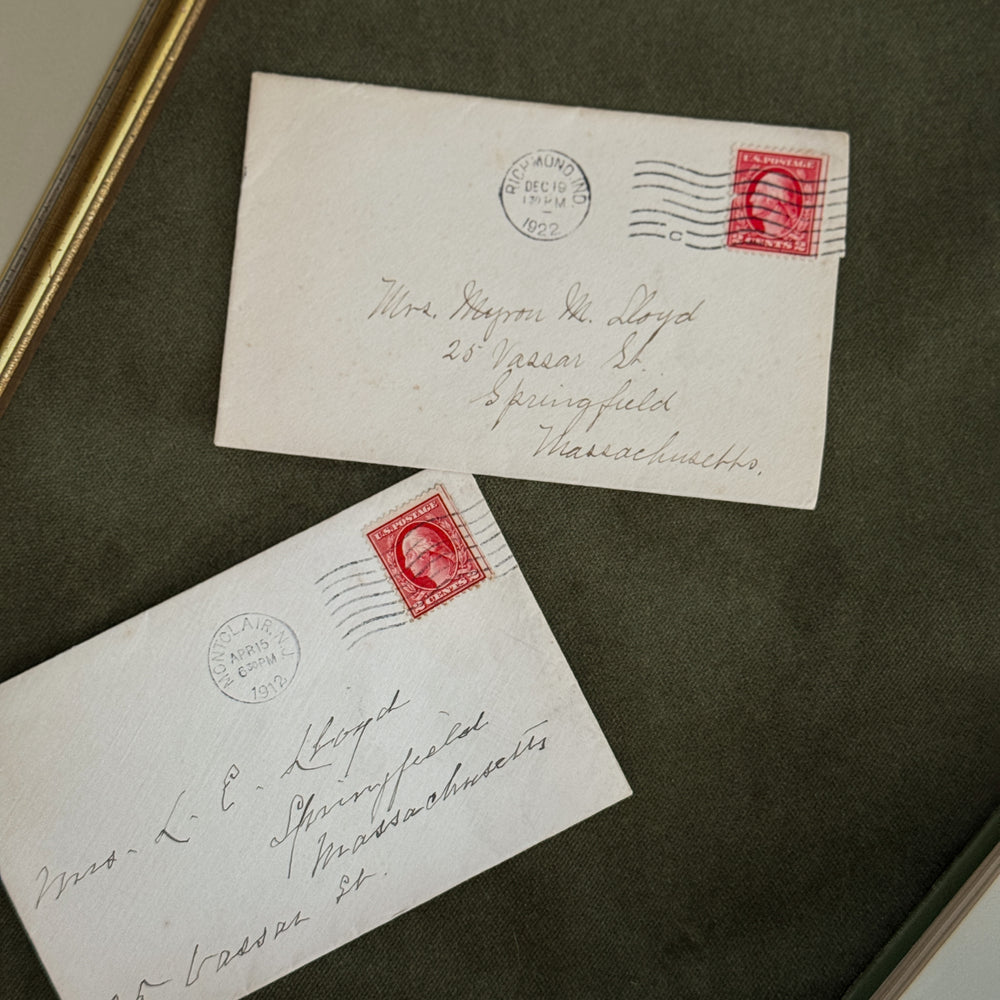 RICHMOND, IND.
DEC 19
1 30 PM
1922
C
U.S. POSTAGE
2 CENTS 2
Mrs. Myron M. Lloyd
25 Vassar St.
Springfield
Massachusetts.
U.S. POSTAGE
2 CENTS 2
MONTCLAIR, N.J.
APR 15
6 30 PM
1912
Mrs. L. E. Lloyd
Springfield
Massachusetts
Vassar St.